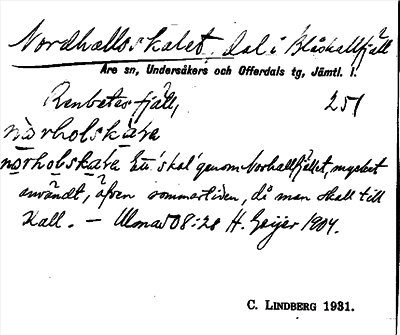 Nordhallsskalet, dal i Blåhallfjäll
Åre sn, Undersåkers och Offerdals tg, Jämtl. l.
Renbetesfjäll, 251
norholskára
norholskára Ett 'skal' genom Norhallfjället, mycket
användt, äfven sommartiden, då man skall till
Kall. — Ulona 508:28 H. Geijer 1904.
C. LINDBERG 1931.